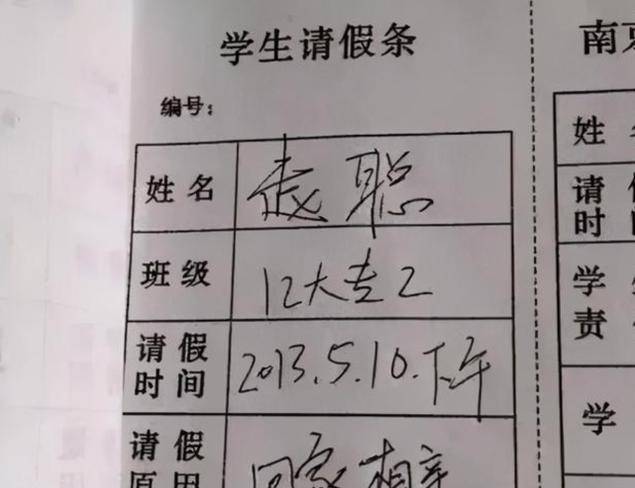 学生请假条
编号：
姓名 赵聪
班级 12大专2
请假时间 2013.5.10.下午
请假原因 回家相亲
南京
姓
请
时
学
责
学